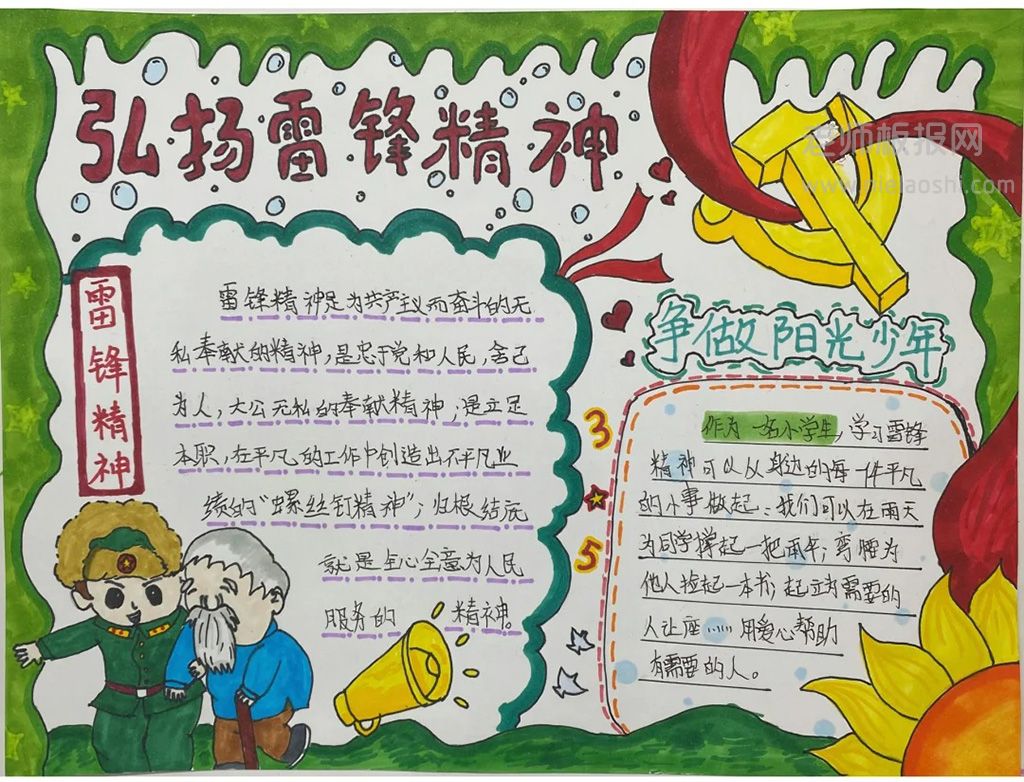 弘扬雷锋精神
雷锋精神
雷锋精神是为共产主义而奋斗的无
私奉献的精神,是忠于党和人民,舍己
为人,大公无私的奉献精神;是立足
本职,在平凡的工作中创造出不平凡业
绩的“螺丝钉精神”;归根结底
就是全心全意为人民
服务的 精神。
3
5
争做阳光少年
作为一名小学生,学习雷锋
精神可以从身边的每一件平凡
的小事做起:我们可以在雨天
为同学撑起一把雨伞;弯腰为
他人捡起一本书;起立为需要的
人让座……用爱心帮助
有需要的人。
老师板报网